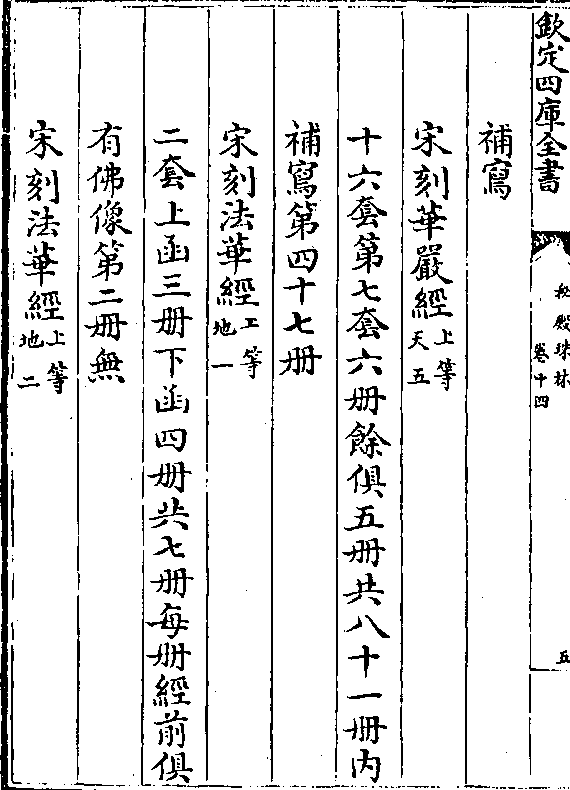 欽定四庫全書
秘殿珠林
卷十四
五
補寫
宋刻華嚴經上等天五
十六套第七套六册餘俱五册共八十一册内
補寫第四十七册
宋刻法華經上等地一
二套上函三册下函四册共七册每册經前俱
有佛像第二册無
宋刻法華經上等地二